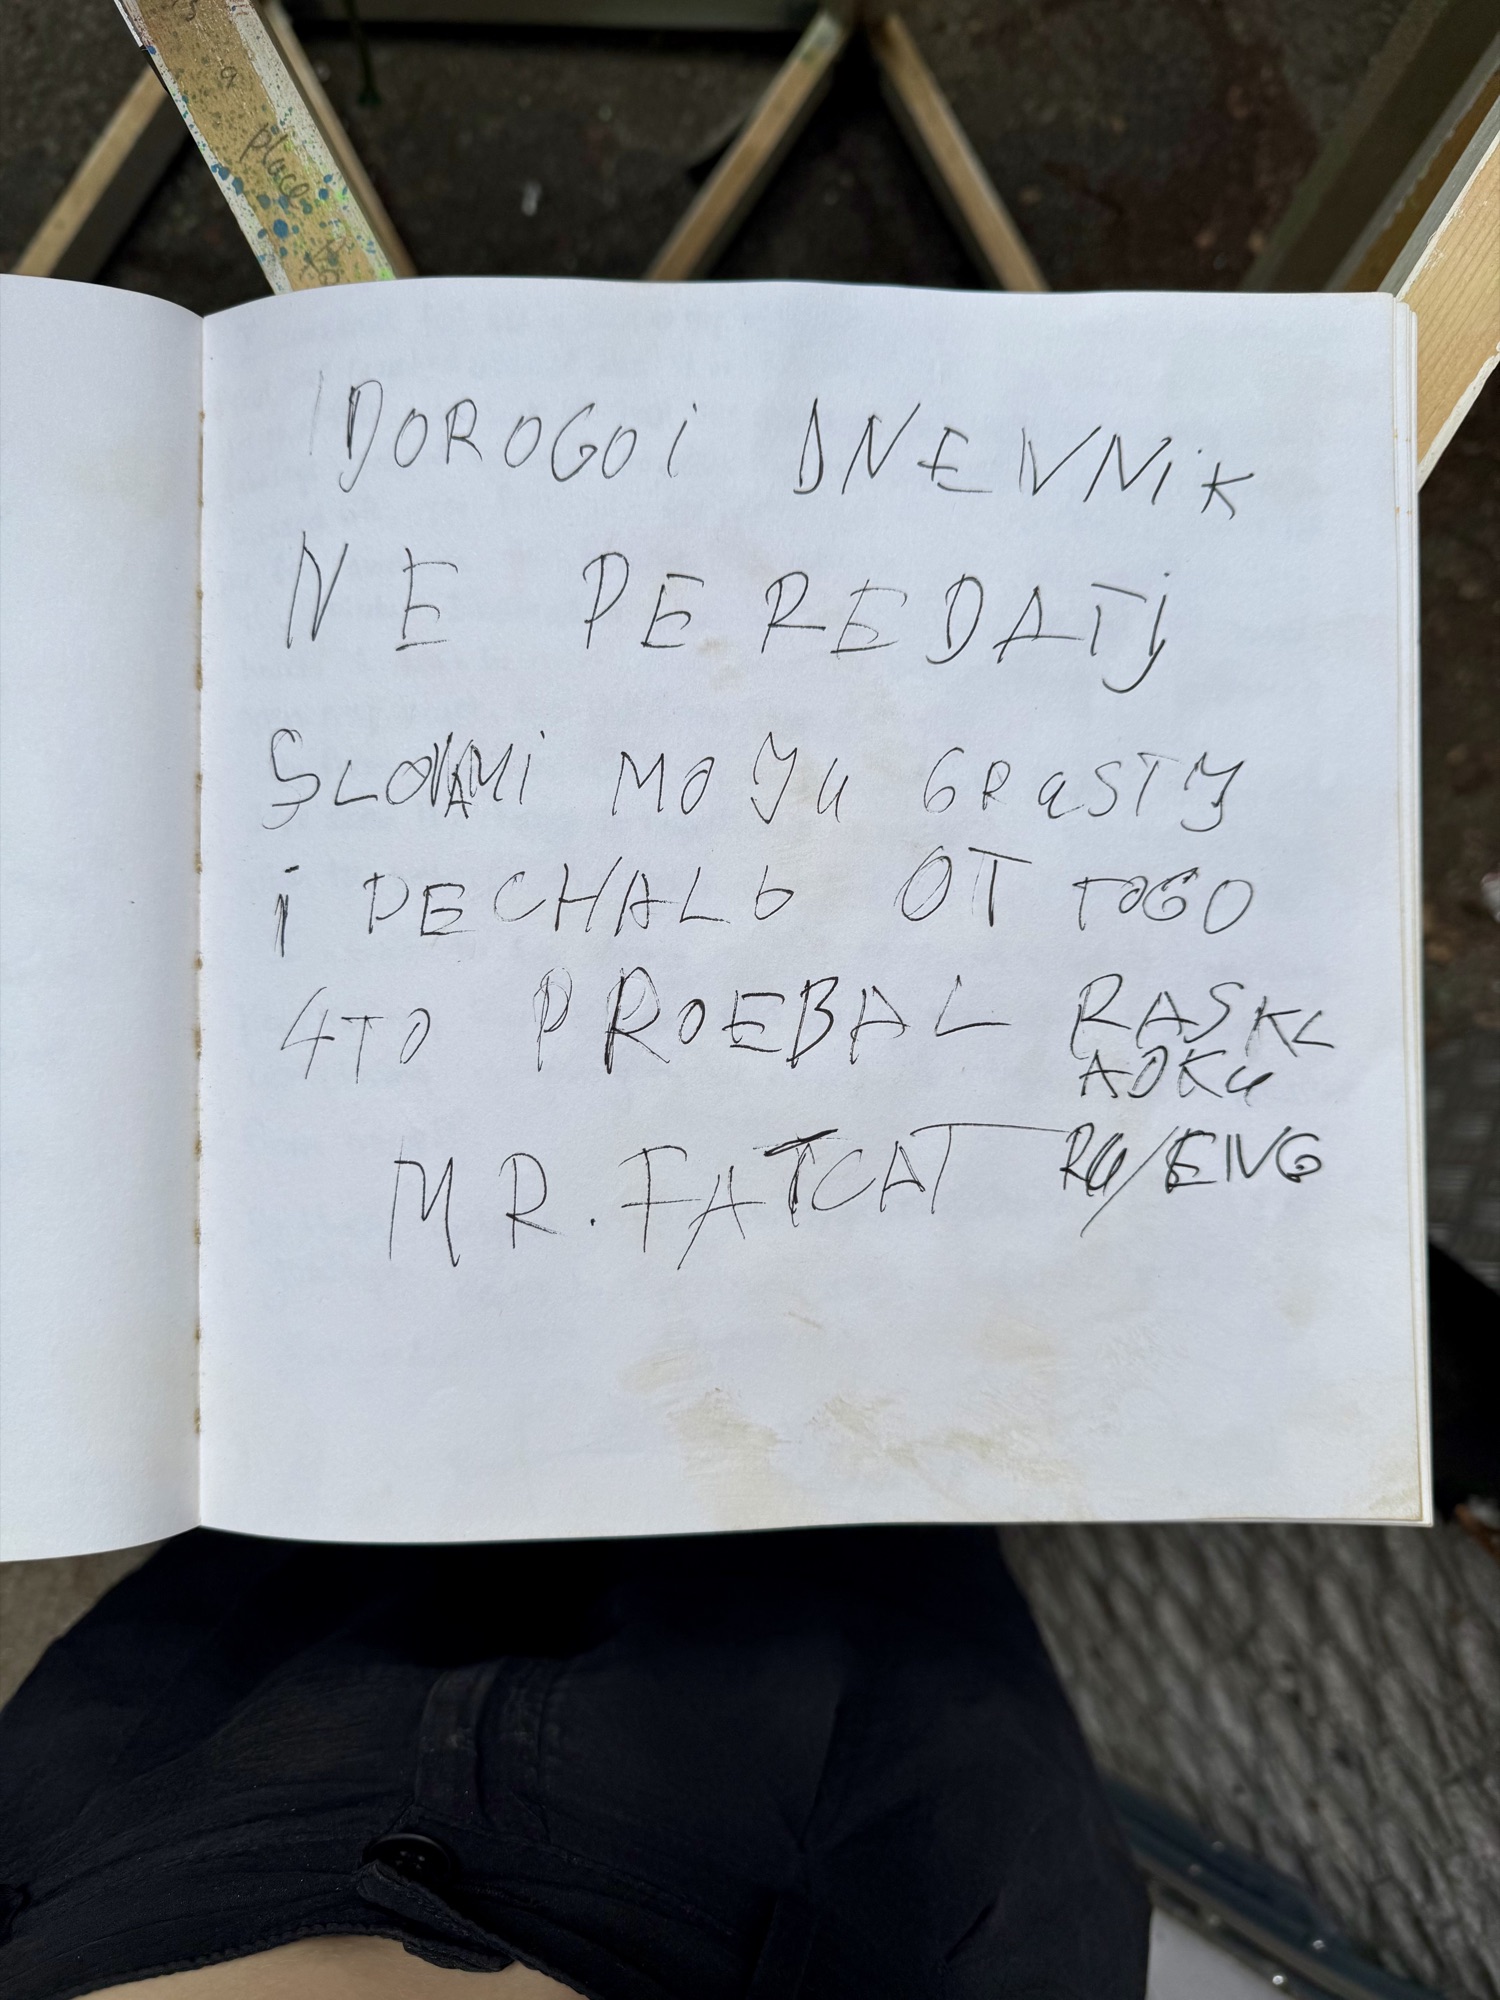 a
place
DOROGOi DNEVNiK
NE PEREDATj
SLOVAMi MOJu GRuSTJ
i PECHALb OT TOGO
4TO PROEBAL RASKL
ADKu
MR. FATCAT RU/ENG